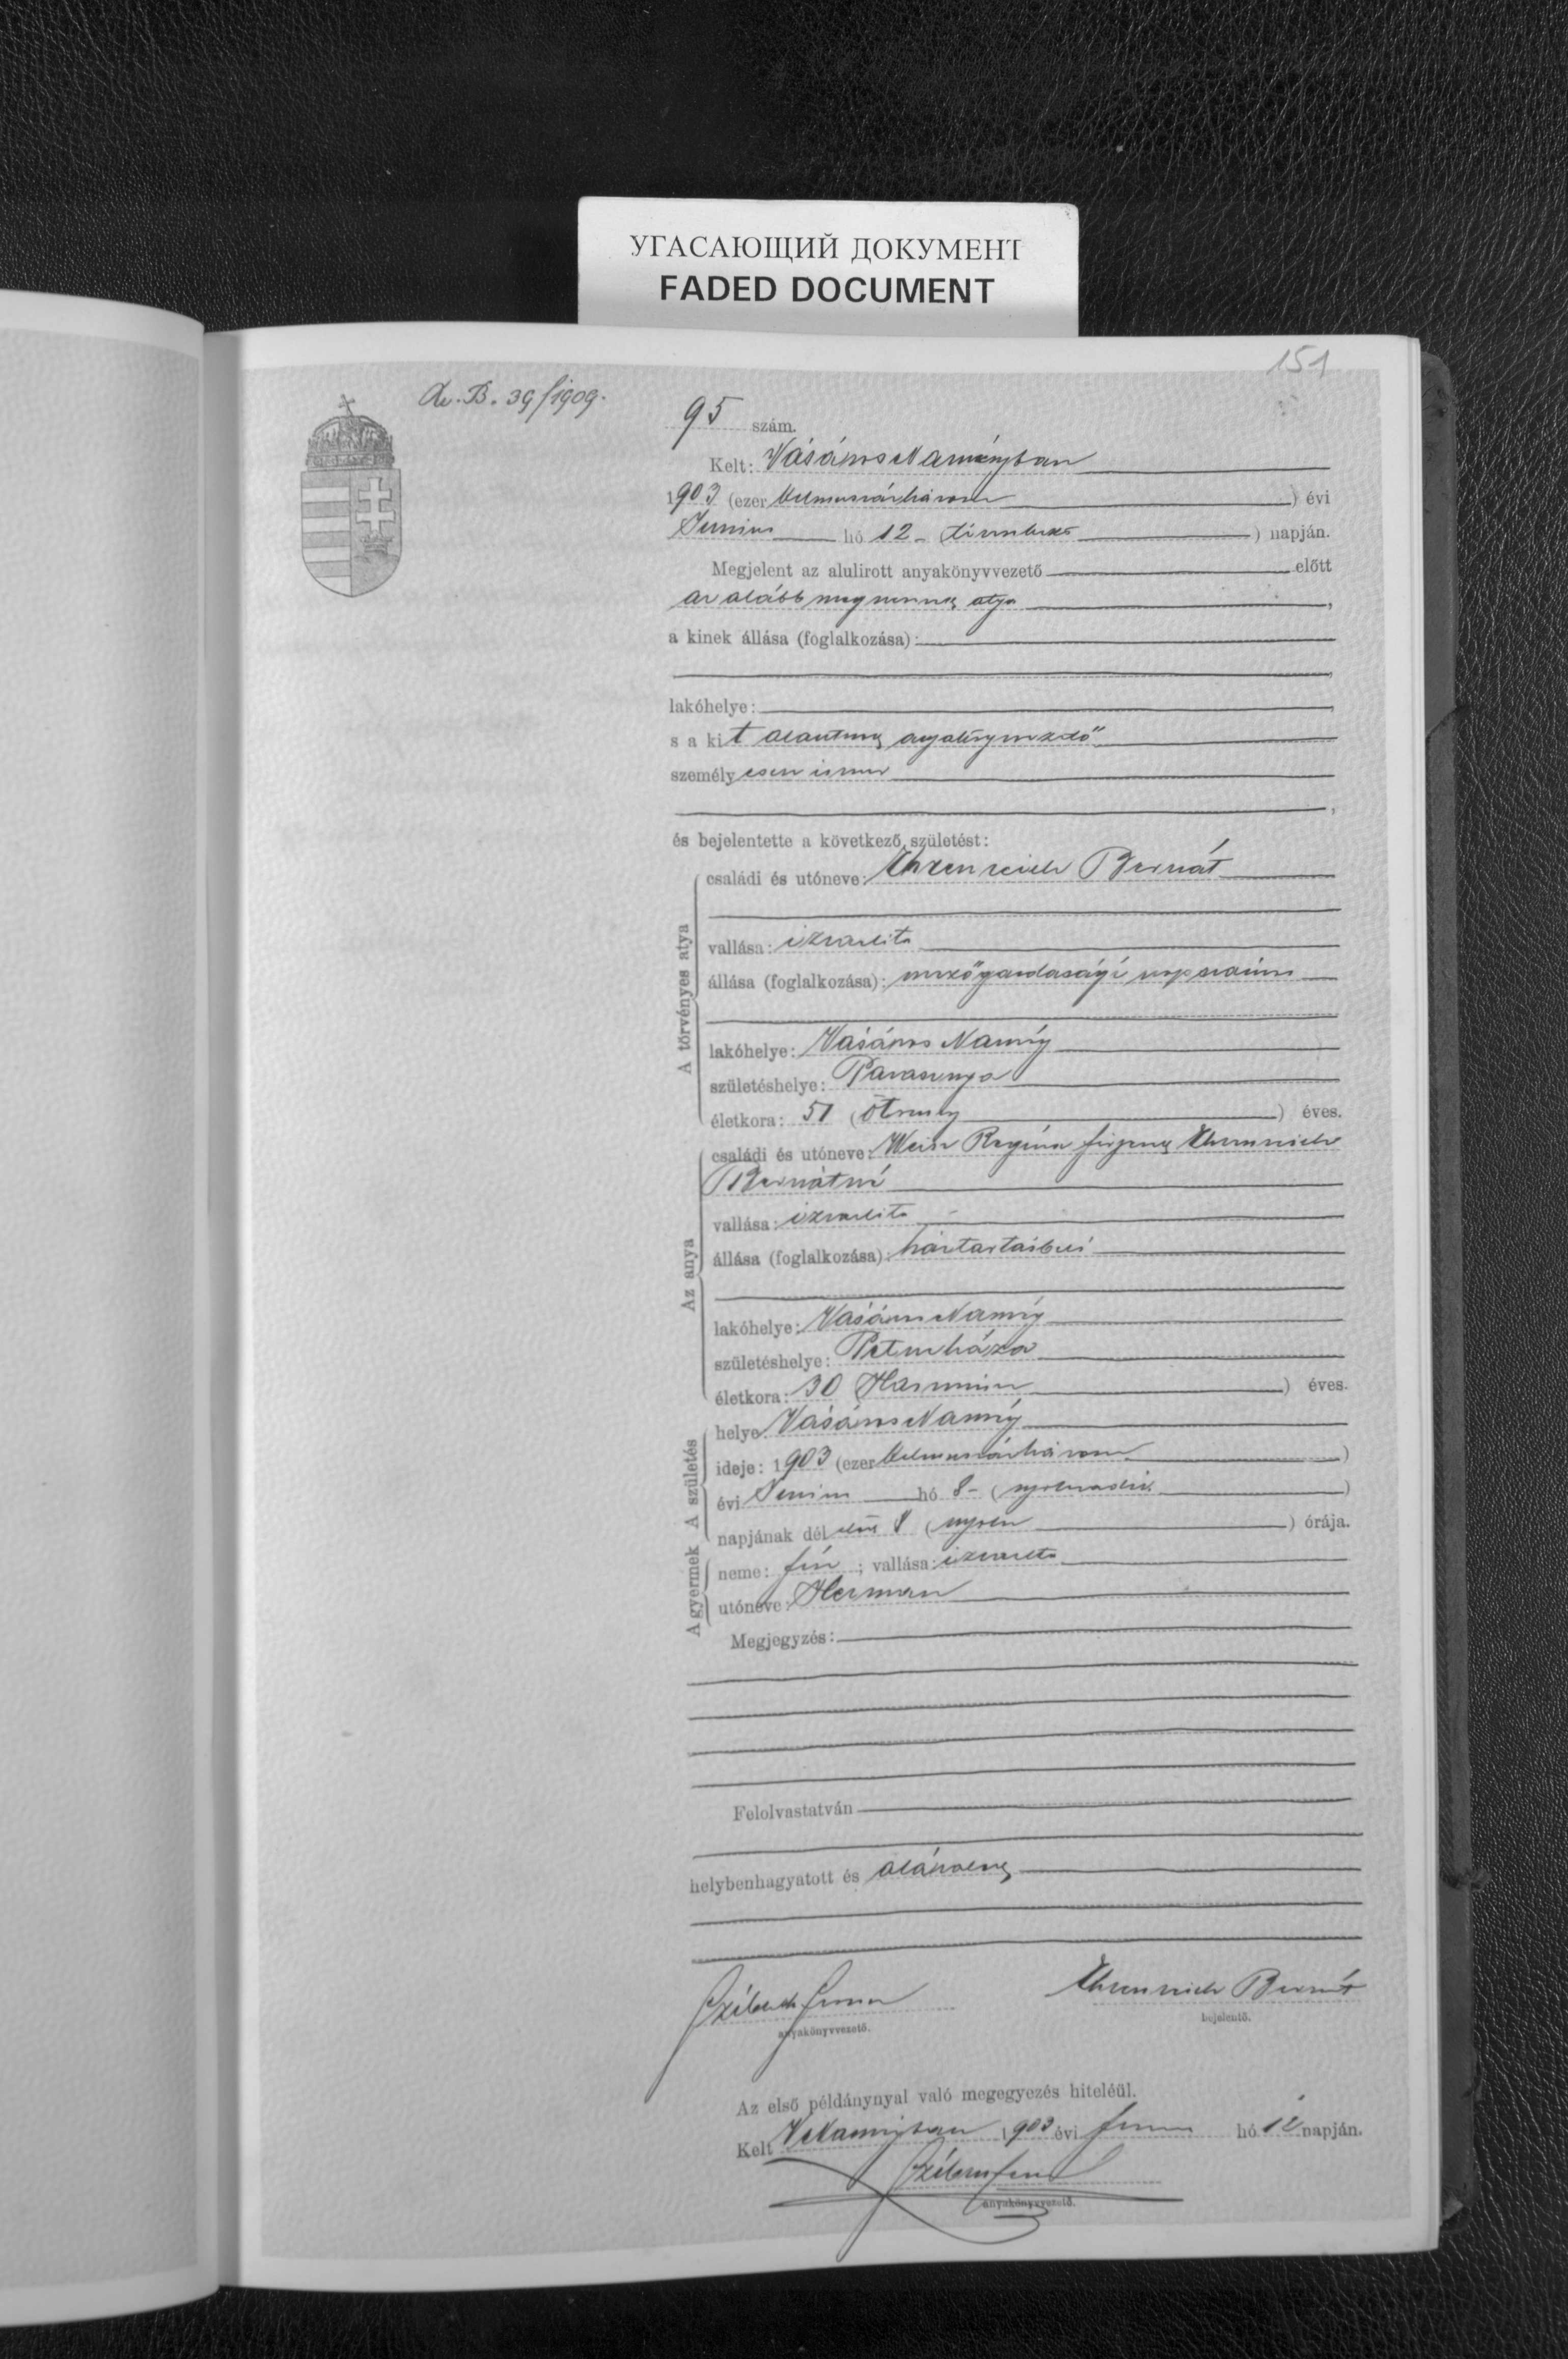 УГАСАЮЩИЙ ДОКУМЕНТ
FADED DOCUMENT
151
39/1909.
95 szám.
Kelt: VásárosNaményban
1903 (ezer kilencszázhárom) évi
Junius hó 12- (tizenkettő) napján.
Megjelent az alulirott anyakönyvvezető előtt
az alább megnevezett atya,
a kinek állása (foglalkozása):
lakóhelye:
s a kit alantirt anyakönyvvezető
személyesen ismer
és bejelentette a következő születést:
A törvényes atya
családi és utóneve: Ehrenreich Bernát
vallása: izraelita
állása (foglalkozása): mezőgazdasági napszámos
lakóhelye: Vásáros Namény
születéshelye: Parasznya
életkora: 51 (ötvenegy) éves.
Az anya
családi és utóneve: Weisz Regina férjezett Ehrenreich
Bernátné
vallása: izraelita
állása (foglalkozása): háztartásbeli
lakóhelye: VásárosNamény
születéshelye: Petneháza
életkora: 30 (Harmincz) éves.
A születés
helye: VásárosNamény
ideje: 1903 (ezer kilencszázhárom)
évi Junius hó 8- (nyolczadik)
napjának délelőtt 8 (nyolcz) órája.
A gyermek
neme: fiu; vallása: izraelita
utóneve: Herman
Megjegyzés:
Felolvastatván
helybenhagyatott és aláiratott
Ehrenreich Bernát
anyakönyvvezető.
bejelentő.
Az első példánynyal való megegyezés hiteléül.
Kelt VNaményban 1903 évi junius hó 12 napján.
anyakönyvvezető.